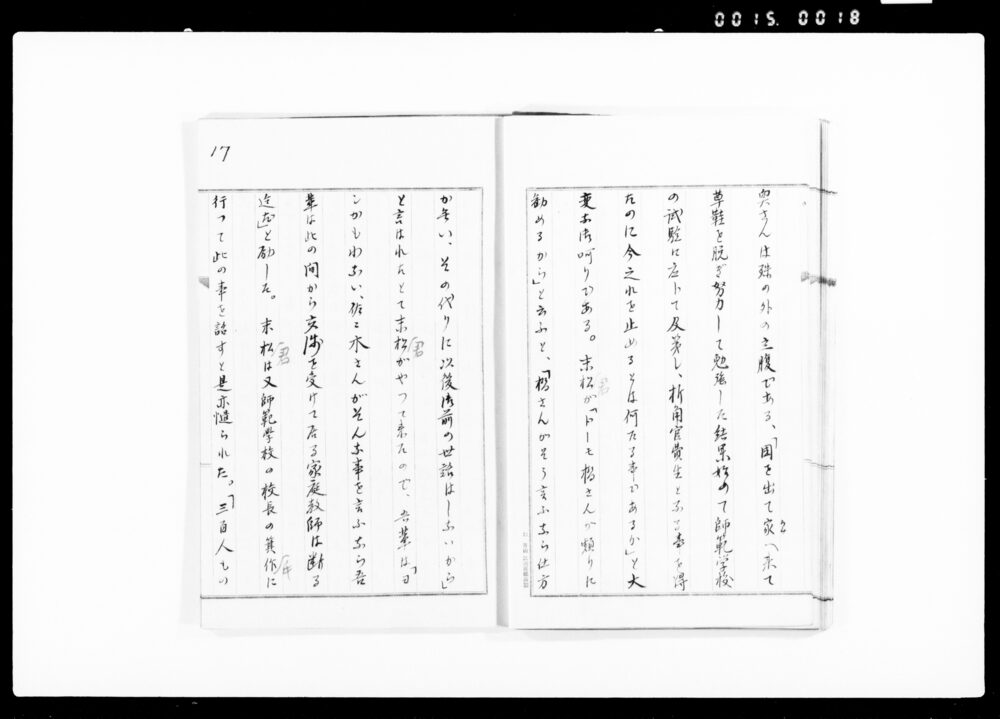 0015. 0018
奥さんは殊の外の立腹である、「国を出て家へ来て
草鞋を脱ぎ努力して勉強した結果始めて師範学校
の試験に応じて及第し、折角官費生となる事を得
たのに今之れを止めるとは何たる事であるか」と大
変な御呵りである。末松君が「ドーモ橋さんが頻りに
勧めるから」と云ふと、「橋さんがそう言ふなら仕方
17
か無い、その代りに以後御前の世話はしないから」
と言はれたとて末松君がやつて来たので、吾輩は「ヨ
シかもわない、佐々木さんがそんな事を言ふなら吾
輩は此の間から交渉を受けて居る家庭教師は断る
迄だ」と励した。末松君は又師範学校の校長の箕作に
行つて此の事を話すと是亦慥られた。「三百人もの